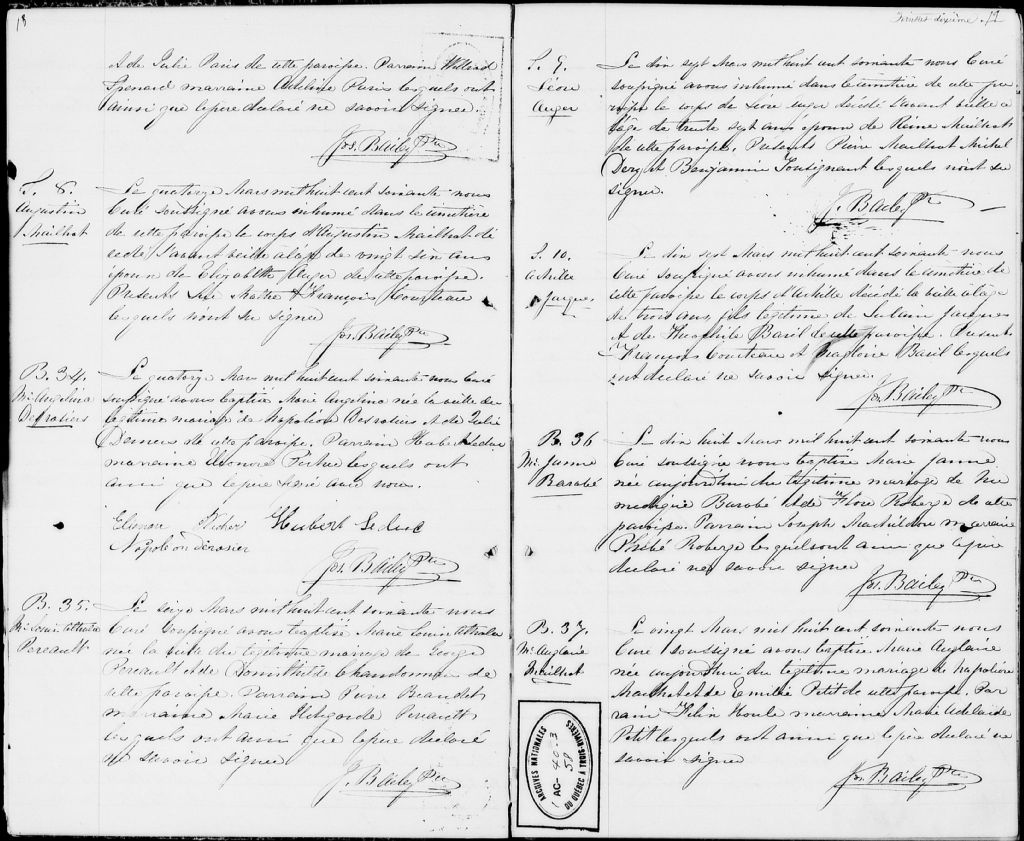 18
et de Julie Paris de cette paroisse. Parrain
Spenard marraine Adeline Paris lesquels ont
ainsi que le père déclaré ne savoir signer.
Jos. Bailey Ptre
S. 8.
Augustin
Mailhot
Le quatorze Mars mil huit cent soixante nous
Curé soussigné avons inhumé dans le cimetière
de cette paroisse le corps d'Augustin Mailhot dé
cédé l'avant veille à l'âge de vingt six ans
époux de Elizabeth Auger de cette paroisse.
Présents Mathe & François Courteau
lesquels n'ont su signer
Jos. Bailey Ptre
B. 34.
Me Angelina
Desrosiers
Le quatorze Mars mil huit cent soixante nous Curé
soussigné avons baptisé Marie Angelina née la veille du
légitime mariage de Napoléon Desrosiers et de Julie
Demers de cette paroisse. Parrain Hubert Leduc
marraine Eléonore lesquels ont
ainsi que le père signé avec nous.
Hubert Leduc
Napoleon derosier
Jos. Bailey Ptre
B. 35.
Me Louise
Pereault
Le seize Mars mil huit cent soixante nous
Curé soussigné avons baptisé Marie Louise
née la veille du légitime mariage de George
Pereault et de Domithilde Chandonnet de
cette paroisse. Parrain Pierre Beaudet
marraine Marie Perault
lesquels ont ainsi que le père déclaré
ne savoir signer
J. Bailey Ptre
Feuillet dixième. 19
S. 9.
Léon
Auger
Le dix sept Mars mil huit cent soixante nous Curé
soussigné avons inhumé dans le cimetière de cette pa
roisse le corps de Léon Auger décédé l'avant veille à
l'âge de trente sept ans époux de Reine Mailhot
de cette paroisse. Présents Pierre Mailhot Michel
Benjamin Tousignant lesquels n'ont su
signer.
J. Bailey Ptre
S. 10.
Achille
Jacques
Le dix sept Mars mil huit cent soixante nous
Curé soussigné avons inhumé dans le cimetière de
cette paroisse le corps d'Achille décédé la veille à l'âge
de trois ans, fils légitime de Julien Jacques
et de Théophile Baril de cette paroisse. Présents
François Courteau et Baril lesquels
ont déclaré ne savoir signer.
Jos. Bailey Ptre
B. 36
Me Jamne
Barabé
Le dix huit Mars mil huit cent soixante nous
Curé soussigné avons baptisé Marie Jamne
née aujourd'hui du légitime mariage de
Barabé et de Flore Roberge de cette
paroisse. Parrain Joseph marraine
Phébé Roberge lesquels ont ainsi que le père
déclaré ne savoir signer
Jos. Bailey Ptre
B. 37.
Me Anglaire
Mailhot
Le vingt Mars mil huit cent soixante nous
Curé soussigné avons baptisé Marie Anglaire
née aujourd'hui du légitime mariage de Napoléon
Mailhot et de Emilie Petit de cette paroisse. Par
rain Félix Houle marraine Marie Adelaide
Petit lesquels ont ainsi que le père déclaré ne
savoir signer
Jos. Bailey Ptre
ARCHIVES NATIONALES
AC- 40.3
58
DU QUÉBEC À TROIS-RIVIÈRES